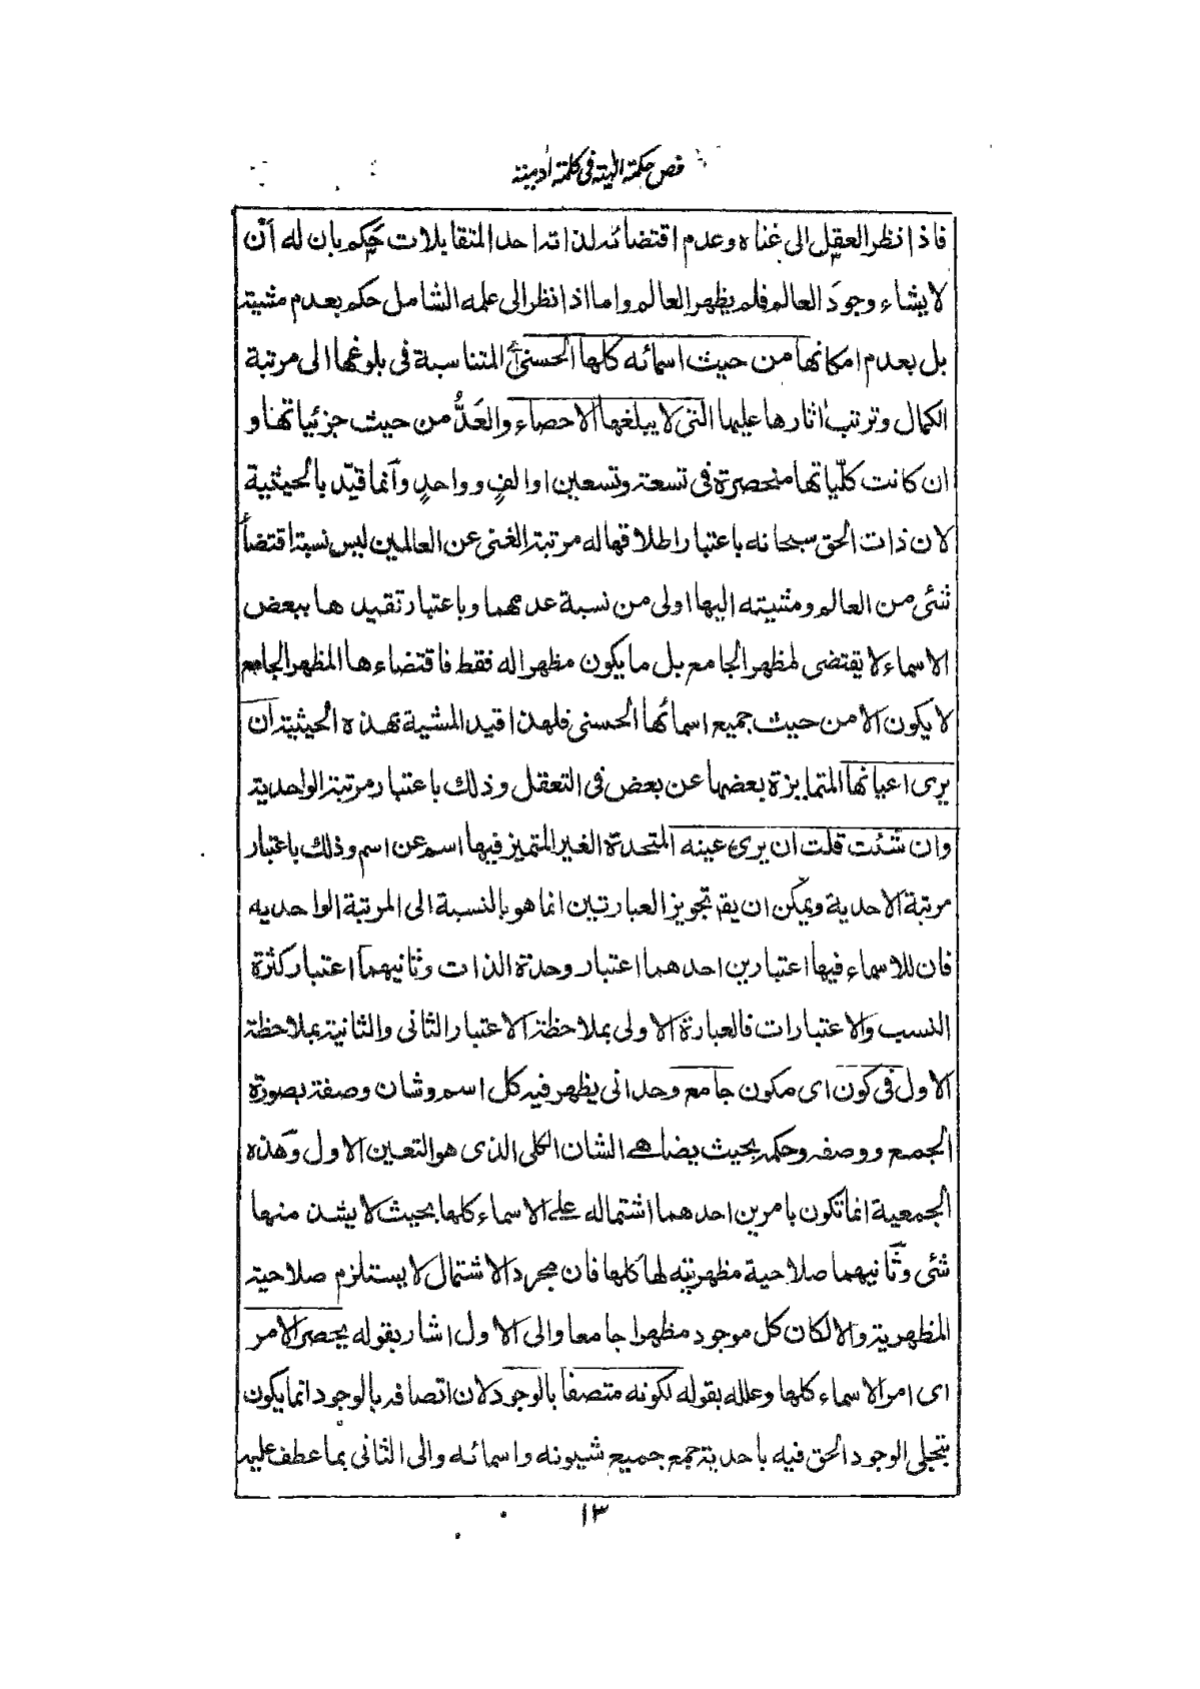 فص حكمة الهية فى كلمة ادمية
فاذا نظر العقل الى غناه وعدم اقتضائه لذاته احد المتقابلات حكم بان له ان
لا يشاء وجود العالم فلم يظهر العالم واما اذا نظر الى علمه الشامل حكم بعدم مشيته
بل بعدم امكانها من حيث اسمائه كلها الحسنى اى المتناسبة فى بلوغها الى مرتبة
الكمال وترتب اثارها عليها التى لا يبلغها الاحصاء والعَدُّ من حيث جزئياتها و
ان كانت كلّياتها منحصرة فى تسعة وتسعين او الفٍ وواحدٍ وانما قيّد بالحيثية
لان ذات الحق سبحانه باعتبار اطلاقها له مرتبة الغنى عن العالمين ليس نسبة اقتضأ
شئى من العالم ومشيته اليها اولى من نسبة عدمهما وباعتبار تقيدها ببعض
الاسماء لا يقتضى لمظهر الجامع بل ما يكون مظهرا له فقط فاقتضاءها المظهر الجامع
لا يكون الا من حيث جميع اسمائها الحسنى فلهذا قيد المشية بهذه الحيثية ان
يرى اعيانها المتمايزة بعضها عن بعض فى التعقل وذلك باعتبار مرتبة الواحدية
وان شئت قلت ان يرى عينه المتحدة الغير المتميز فيها اسم عن اسم وذلك باعتبار
مرتبة الاحدية ويمكن ان يق تجويز العبارتين انما هو بالنسبة الى المرتبة الواحديه
فان للاسماء فيها اعتبارين احدهما اعتبار وحدة الذات وثانيهما اعتبار كثرة
النسب والاعتبارات فالعبارة الاولى بملاحظة الاعتبار الثانى والثانية بملاحظة
الاول فى كون اى مكون جامع وحدانى يظهر فيه كل اسم وشان وصفة بصورة
الجمع ووصفه وحكمه بحيث يضاهے الشان الكلى الذى هو التعين الاول وهذه
الجمعية انما تكون بامرين احدهما اشتماله على الاسماء كلها بحيث لا يشذ منها
شئى وثانيهما صلاحية مظهريته لها كلها فان مجرد الاشتمال لا يستلزم صلاحية
المظهرية والا لكان كل موجود مظهرا جامعا والى الاول اشار بقوله يحصر الامر
اى امر الاسماء كلها وعلله بقوله لكونه متصفا بالوجود لان اتصافه بالوجود انما يكون
بتجلى الوجود الحق فيه باحدية جمع جميع شيونه واسمائه والى الثانى بما عطف عليه
١٣